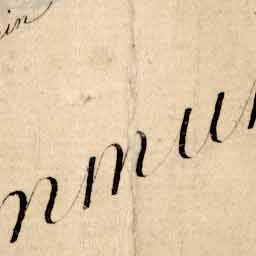 in
nmu